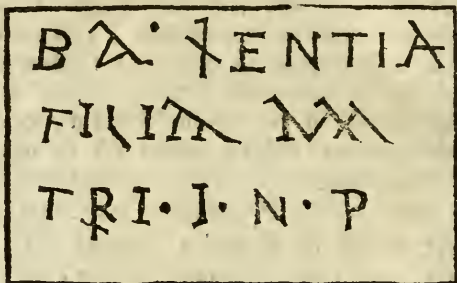 BA·LENTIA
FILIA MA
TRI·I·N·P